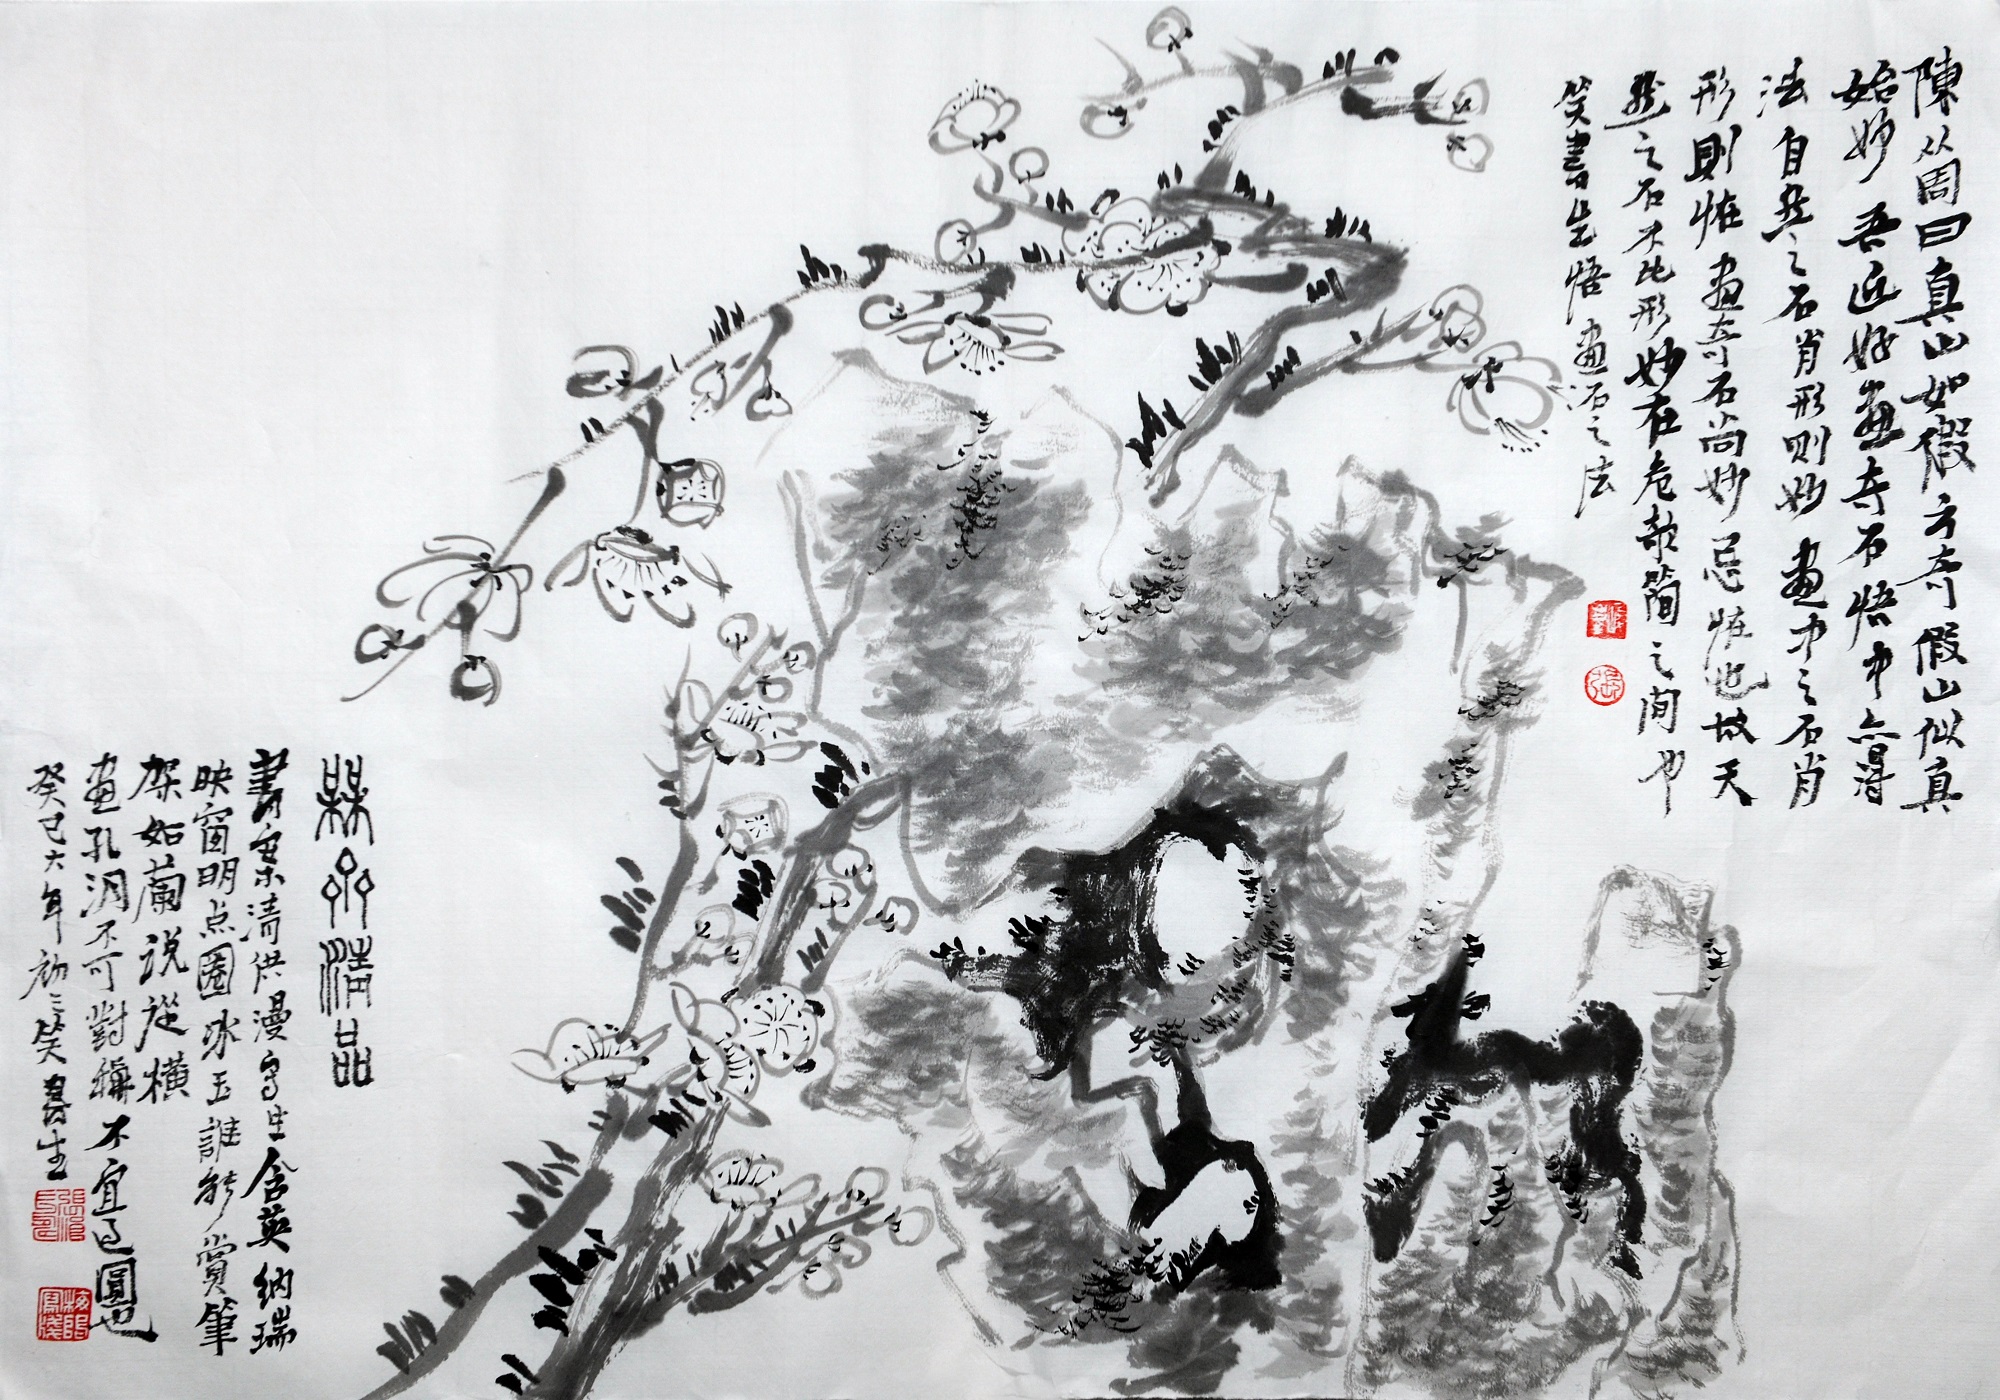 陳从周曰真山如假方奇假山似真
始妙吾近好画奇石悟中亦得
法自然之石肖形则妙画中之石肖
形则怪画奇石尚妙忌怪也故天
然之石不比形妙在危欹简之间也
笑書生悟画石之法
槑竹清品
書案清供漫写生含英纳瑞
映窗明点圈冰玉誰能賞筆
架如蘭说從横
画孔洞不可對稱不宜已圓也
癸巳六年初三笑書生